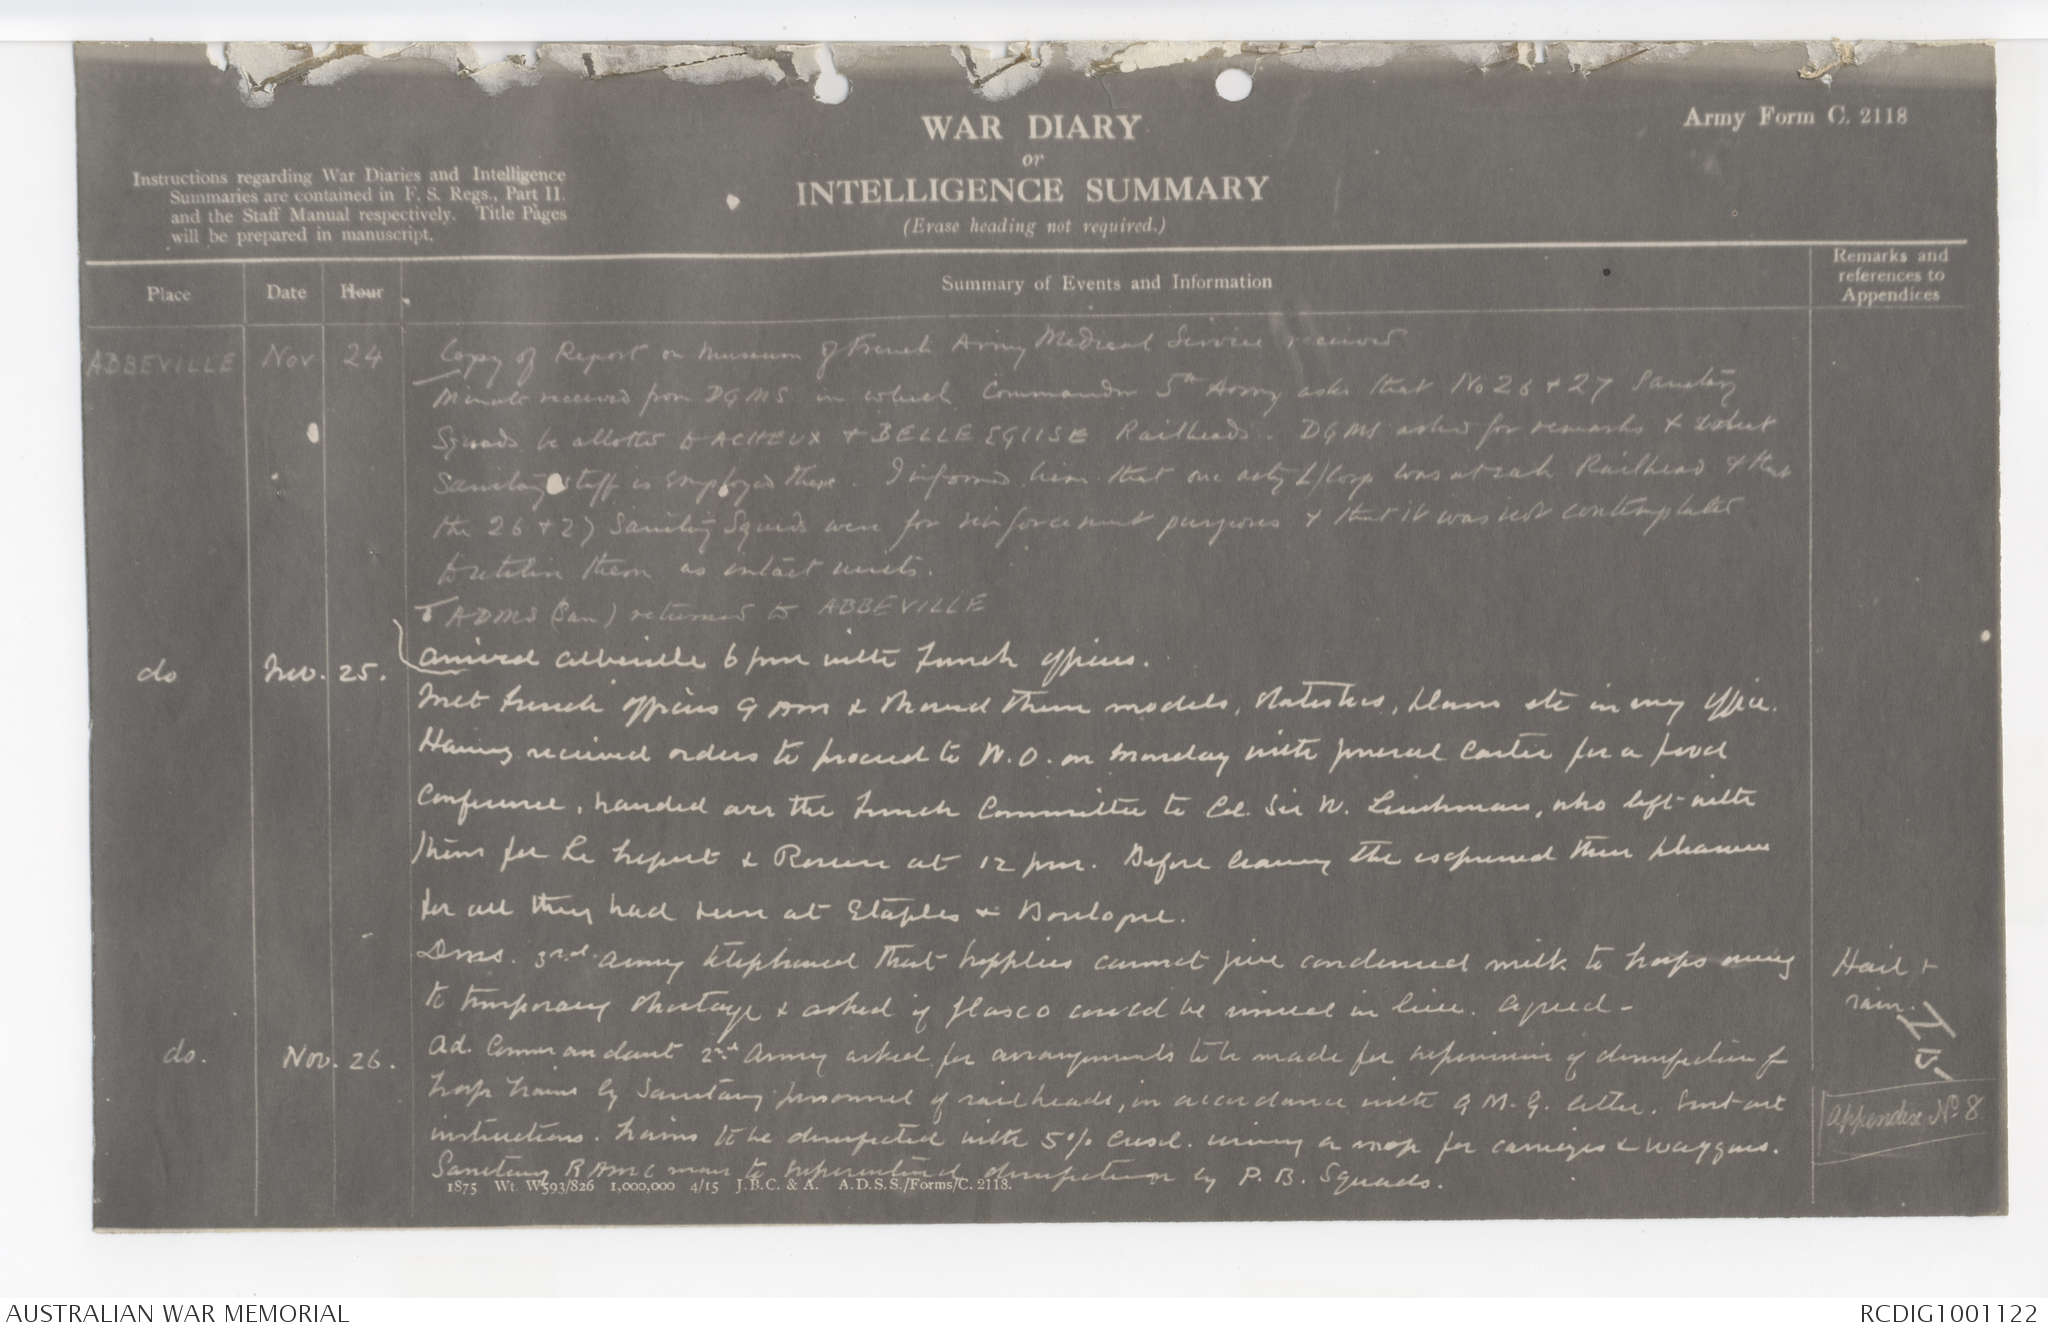 Army Form C. 2118
WAR DIARY
or
INTELLIGENCE SUMMARY
(Erase heading not required.)
Instructions regarding War Diaries and Intelligence
Summaries are contained in F. S. Regs., Part II.
and the Staff Manual respectively. Title Pages
will be prepared in manuscript.
Place
Date
Hour
Summary of Events and Information
Remarks and
references to
Appendices
ABBEVILLE Nov 24 Copy of Report on Museum of French Army Medical Service received
Minute received from DGMS in which Commander 5th Army asks that No 26 + 27 Sanitary
Squads be allotted to ACHEUX + BELLE EGLISE Railheads. DGMS asked for remarks + what
Sanitary staff is employed there. I informed him that one actg L/Corp was at each Railhead + that
the 26 + 27 Sanitary Squads were for reinforcement purposes + that it was not contemplated
to utilise them as intact units.
ADMS (San) returned to ABBEVILLE
Arrived Abbeville 6 pm with French officers.
do Nov. 25. Met French officers 9 am & showed them models, statistics, plans etc in my office.
Having received orders to proceed to W.O. on Monday with General Carter for a food
Conference, handed over the French Committee to Col. Sir W. Leishman, who left with
them for Le Treport & Rouen at 12 pm. Before leaving the expressed their pleasure
for all they had seen at Etaples & Boulogne.
DMS. 3rd Army telephoned that supplies cannot give condensed milk to troops owing
to temporary shortage & asked if Glaxco could be issued in lieu. Agreed -
Hail +
rain.
do. Nov. 26. Ad. Commandant 2nd Army asked for arrangements to be made for supervision of disinfection of
troop trains by Sanitary personnel of railheads, in accordance with Q.M.G. letter. Sent out
instructions. Trains to be disinfected with 5% Cresol. using a mop for carriages & waggons.
Sanitary RAMC man to superintend disinfection by P. B. Squads.
Appendix No 8
1875 Wt. W593/826 1,000,000 4/15 J.B.C. & A. A.D.S.S./Forms/C. 2118.
AUSTRALIAN WAR MEMORIAL
RCDIG1001122